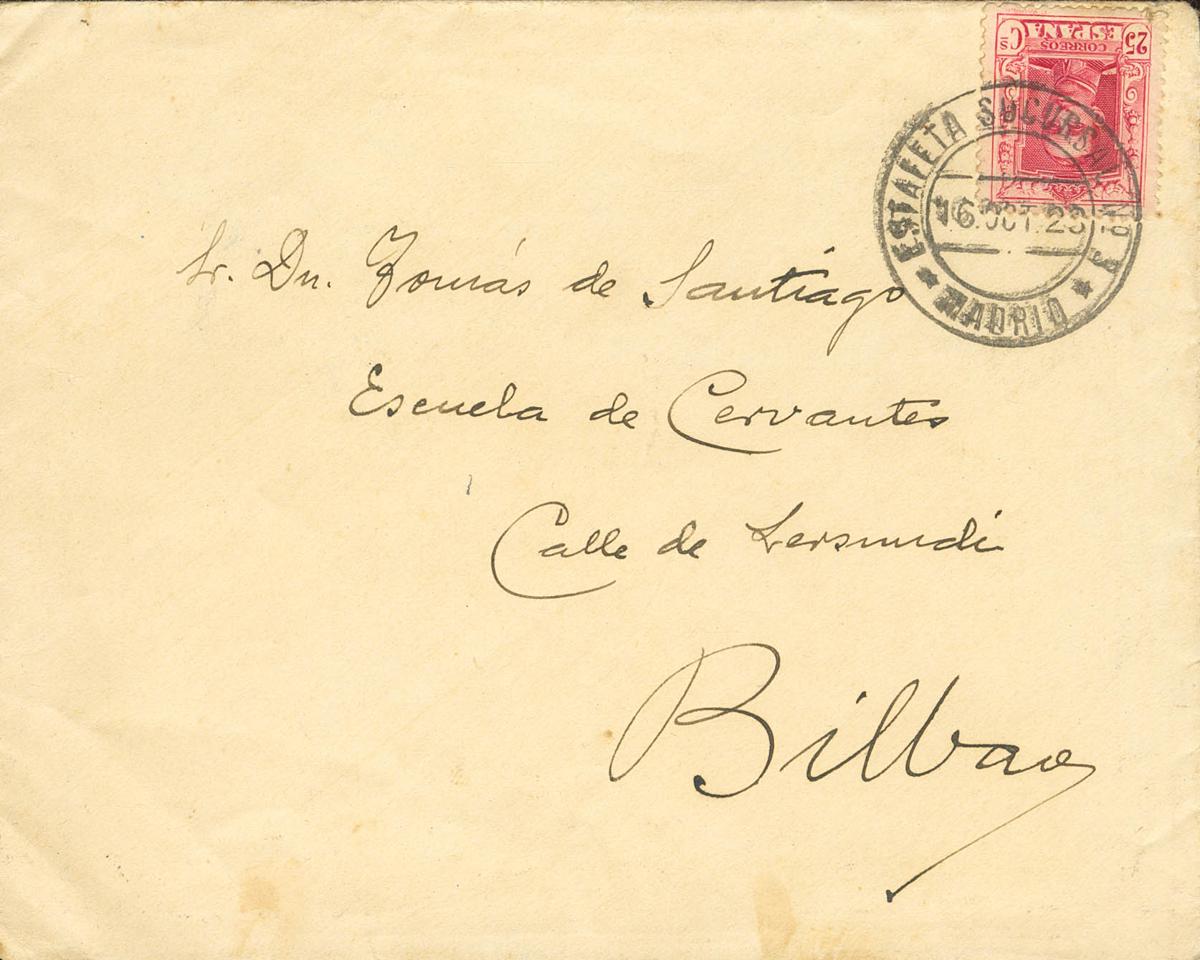 25 Cs
CORREOS
ESPAÑA
ESTAFETA SUCURSAL Nº 3
16.OCT.23
MADRID
Sr. Dn. Tomás de Santiago
Escuela de Cervantes
Calle de Lersundi
Bilbao